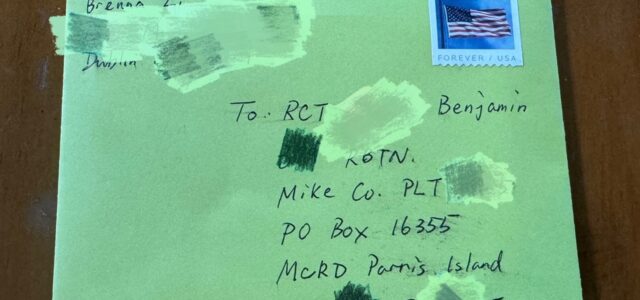 Brenna
FOREVER / USA
To: RCT Benjamin
Mike Co. PLT
PO Box 16355
MCRD Parris Island